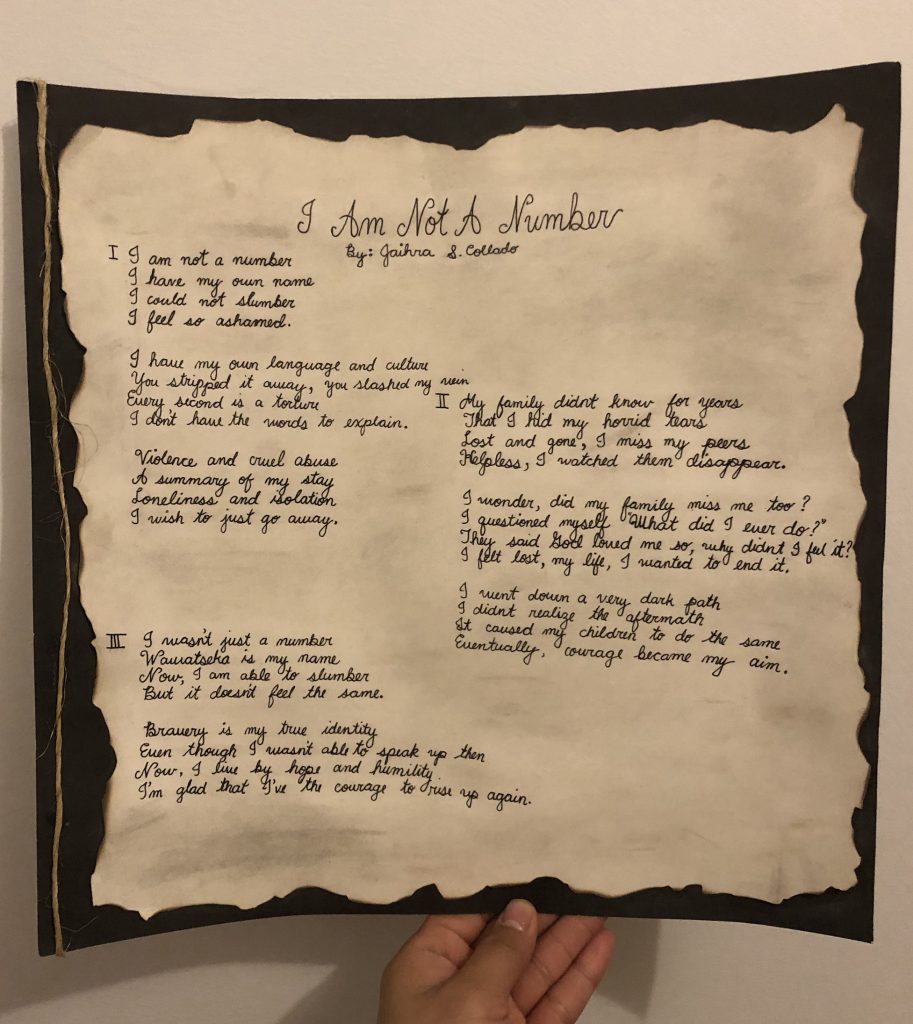 I Am Not A Number
By: Jaihra S. Collado
I I am not a number
I have my own name
I could not slumber
I feel so ashamed.
I have my own language and culture
You stripped it away, you slashed my vein
Every second is a torture
I don't have the words to explain.
Violence and cruel abuse
A summary of my stay
Loneliness and isolation
I wish to just go away.
II My family didn't know for years
That I hid my horrid tears
Lost and gone, I miss my peers
Helpless, I watched them disappear.
I wonder, did my family miss me too?
I questioned myself "What did I ever do?"
They said God loved me so, why didnt I feel it?
I felt lost, my life, I wanted to end it.
I went down a very dark path
I didnt realize the aftermath
It caused my children to do the same
Eventually, courage became my aim.
III I wasn't just a number
Wawatseka is my name
Now, I am able to slumber
But it doesn't feel the same.
Bravery is my true identity
Even though I wasn't able to speak up then
Now, I live by hope and humility
I'm glad that I've the courage to rise up again.